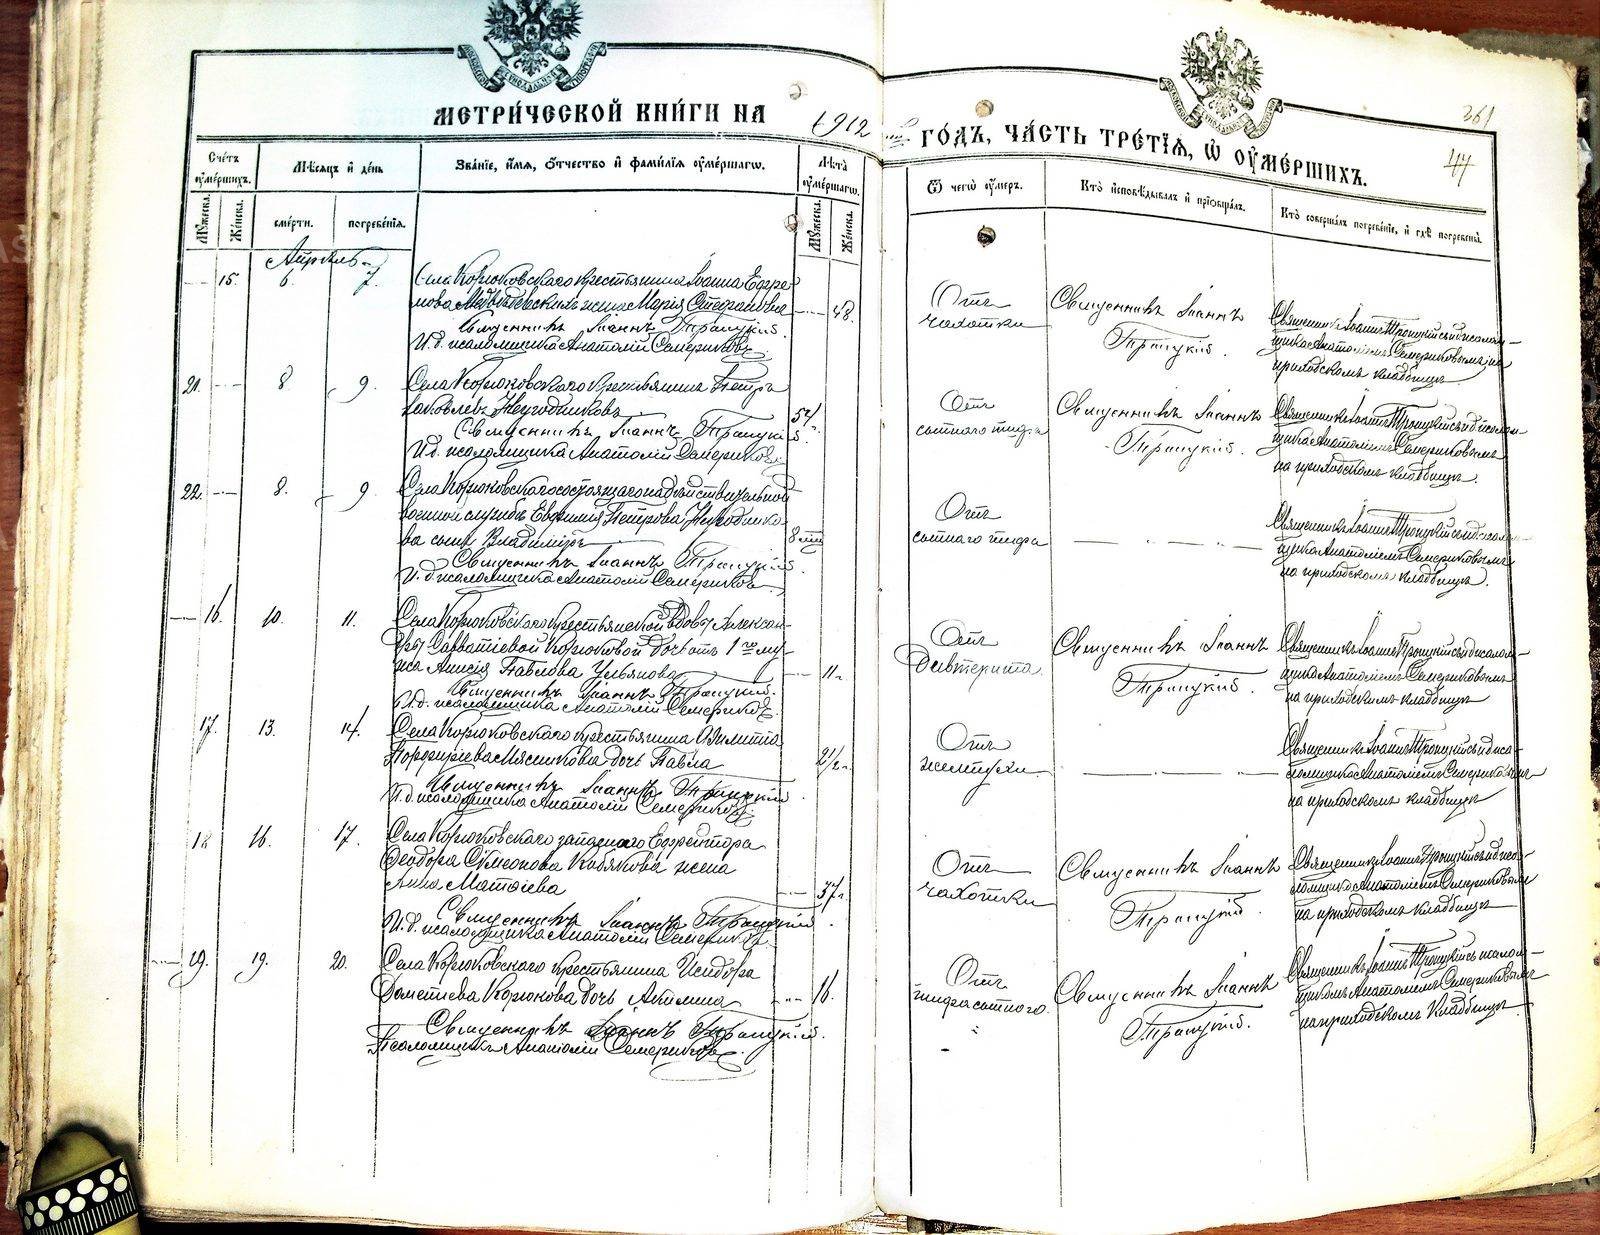 МЕТРИ́ЧЕСКОЙ КНИ́ГИ НА 1912 ГО́ДЪ, ЧА́СТЬ ТРЕ́ТІЯ, Ѡ ОУМЕ́РШИХЪ.
361
Сче́тъ оуме́ршихъ.
Мѣ́сяцъ и де́нь
Зва́ніе, и́мя, ѻ́тчество и фами́лія оуме́ршагѡ.
Лѣ́та оуме́ршагѡ.
Ѿ чегѡ̀ оу́меръ.
Кто̀ исповѣ́дывалъ и пріобща́лъ.
Кто̀ соверша́лъ погребе́ніе, и гдѣ̀ погребены̀.
Му́жеска.
Же́нска.
сме́рти.
погребе́нія.
Му́жеска.
Же́нска.
Апрѣль
15. 6. 7.
Села Корюковскаго крестьянина Іоанна Ефре-
мова Медвѣдевскихъ жена Марія Стефановна
48.
Священникъ Іоаннъ Троицкій.
И.д. псаломщика Анатолій Семериковъ
Отъ
чахотки
Священникъ Іоаннъ
Троицкій.
Священникъ Іоаннъ Троицкій съ и.д псалом-
щика Анатоліемъ Семериковымъ на
приходскомъ кладбищѣ
21. 8 9.
Села Корюковскаго крестьянинъ Петръ
Іаковлевъ Негодяиковъ
Священникъ Іоаннъ Троицкій
И.д. псаломщика Анатолій Семериковъ
Отъ
сыпного тифа
Священникъ Іоаннъ
Троицкій.
Священникъ Іоаннъ Троицкій съ и.д псалом-
щика Анатоліемъ Семериковымъ
на приходскомъ кладбищѣ.
22. 8. 9.
Села Корюковскаго состоящаго на дѣйствительной
военной службѣ Евфимія Петрова
сынъ Владиміръ
8 м
Священникъ Іоаннъ Троицкій
И.д. псаломщика Анатолій Семериковъ
Отъ
сыпного тифа
Священникъ Іоаннъ Троицкій съ и.д псалом-
щика Анатоліемъ Семериковымъ
на приходскомъ кладбищѣ.
16. 10. 11.
Села Корюковскаго крестьянской вдовы Алексан-
дры Савватіевой Корюковой дочь отъ 1го му-
жа Анисія Павлова Ульянова
11 г.
Священникъ Іоаннъ Троицкій.
И.д. псаломщика Анатолій Семериковъ
Отъ
дифтерита.
Священникъ Іоаннъ
Троицкій.
Священникъ Іоаннъ Троицкій съ и.д псалом-
щика Анатоліемъ Семериковымъ
на приходскомъ кладбищѣ
17. 13. 14.
Села Корюковскаго крестьянина
Порфиріева Мясникова дочь Павла
2½ г.
Священникъ Іоаннъ Троицкій
И.д. псаломщика Анатолій Семериковъ
Отъ
желтухи
Священникъ Іоаннъ Троицкій съ и.д пса-
ломщика Анатоліемъ Семериковымъ
на приходскомъ кладбищѣ
18 16. 17.
Села Корюковскаго запаснаго Ефрейтора
Ѳеодора Сѵмеонова Кобякова жена
Анна Матѳіева
37 г.
Священникъ Іоаннъ Троицкій
И.д. псаломщика Анатолій Семериковъ
Отъ
чахотки
Священникъ Іоаннъ
Троицкій.
Священникъ Іоаннъ Троицкій съ и.д пса-
ломщика Анатоліемъ Семериковымъ
на приходскомъ кладбищѣ
19. 19. 20.
Села Корюковскаго крестьянина Исидора
Дометіева Корюкова дочь Акилина
16.
Священникъ Іоаннъ Троицкій.
Псаломщикъ Анатолій Семериковъ.
Отъ
тифа сыпного.
Священникъ Іоаннъ
Троицкій.
Священникъ Іоаннъ Троицкій съ псалом-
щикомъ Анатоліемъ Семериковымъ
на приходскомъ кладбищѣ